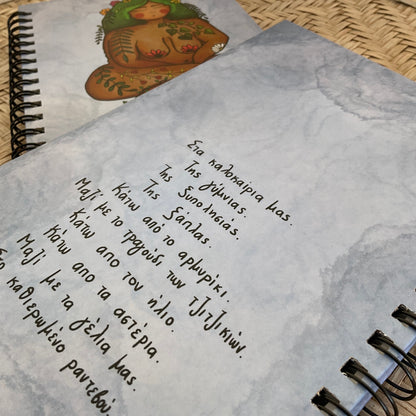 Στα καλοκαίρια μας.
Της γύμνιας.
Της ξυπολησιάς.
Της ξάπλας.
Κάτω από το αρμυρίκι.
Μαζί με το τραγούδι των τζιτζικιών.
Κάτω από τον ήλιο.
Κάτω από τα αστέρια.
Μαζί με τα γέλια μας.
Στο καθιερωμένο ραντεβού.